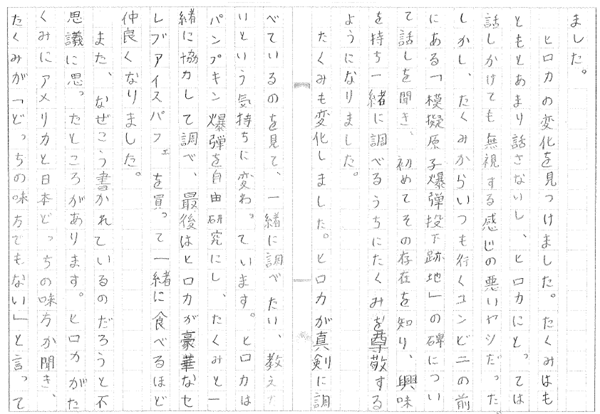 ました。
　ヒロカの変化を見つけました。たくみはも
ともとあまり話さないし、ヒロカにとっては
話しかけても無視する感じの悪いヤツだった。
しかし、たくみからいつも行くコンビニの前
にある「模擬原子爆弾投下跡地」の碑につい
て話しを聞き、初めてその存在を知り、興味
を持ち一緒に調べるうちにたくみを尊敬する
ようになりました。
　たくみも変化しました。ヒロカが真剣に調
べているのを見て、一緒に調べたい、教えた
いという気持ちに変わっています。ヒロカは
パンプキン爆弾を自由研究にし、たくみと一
緒に協力して調べ、最後はヒロカが豪華なセ
レブアイスパフェを買って一緒に食べるほど
仲良くなりました。
　また、なぜこう書かれているのだろうと不
思議に思ったところがあります。ヒロカがた
くみにアメリカと日本どっちの味方か聞き、
たくみが「どっちの味方でもない」と言って